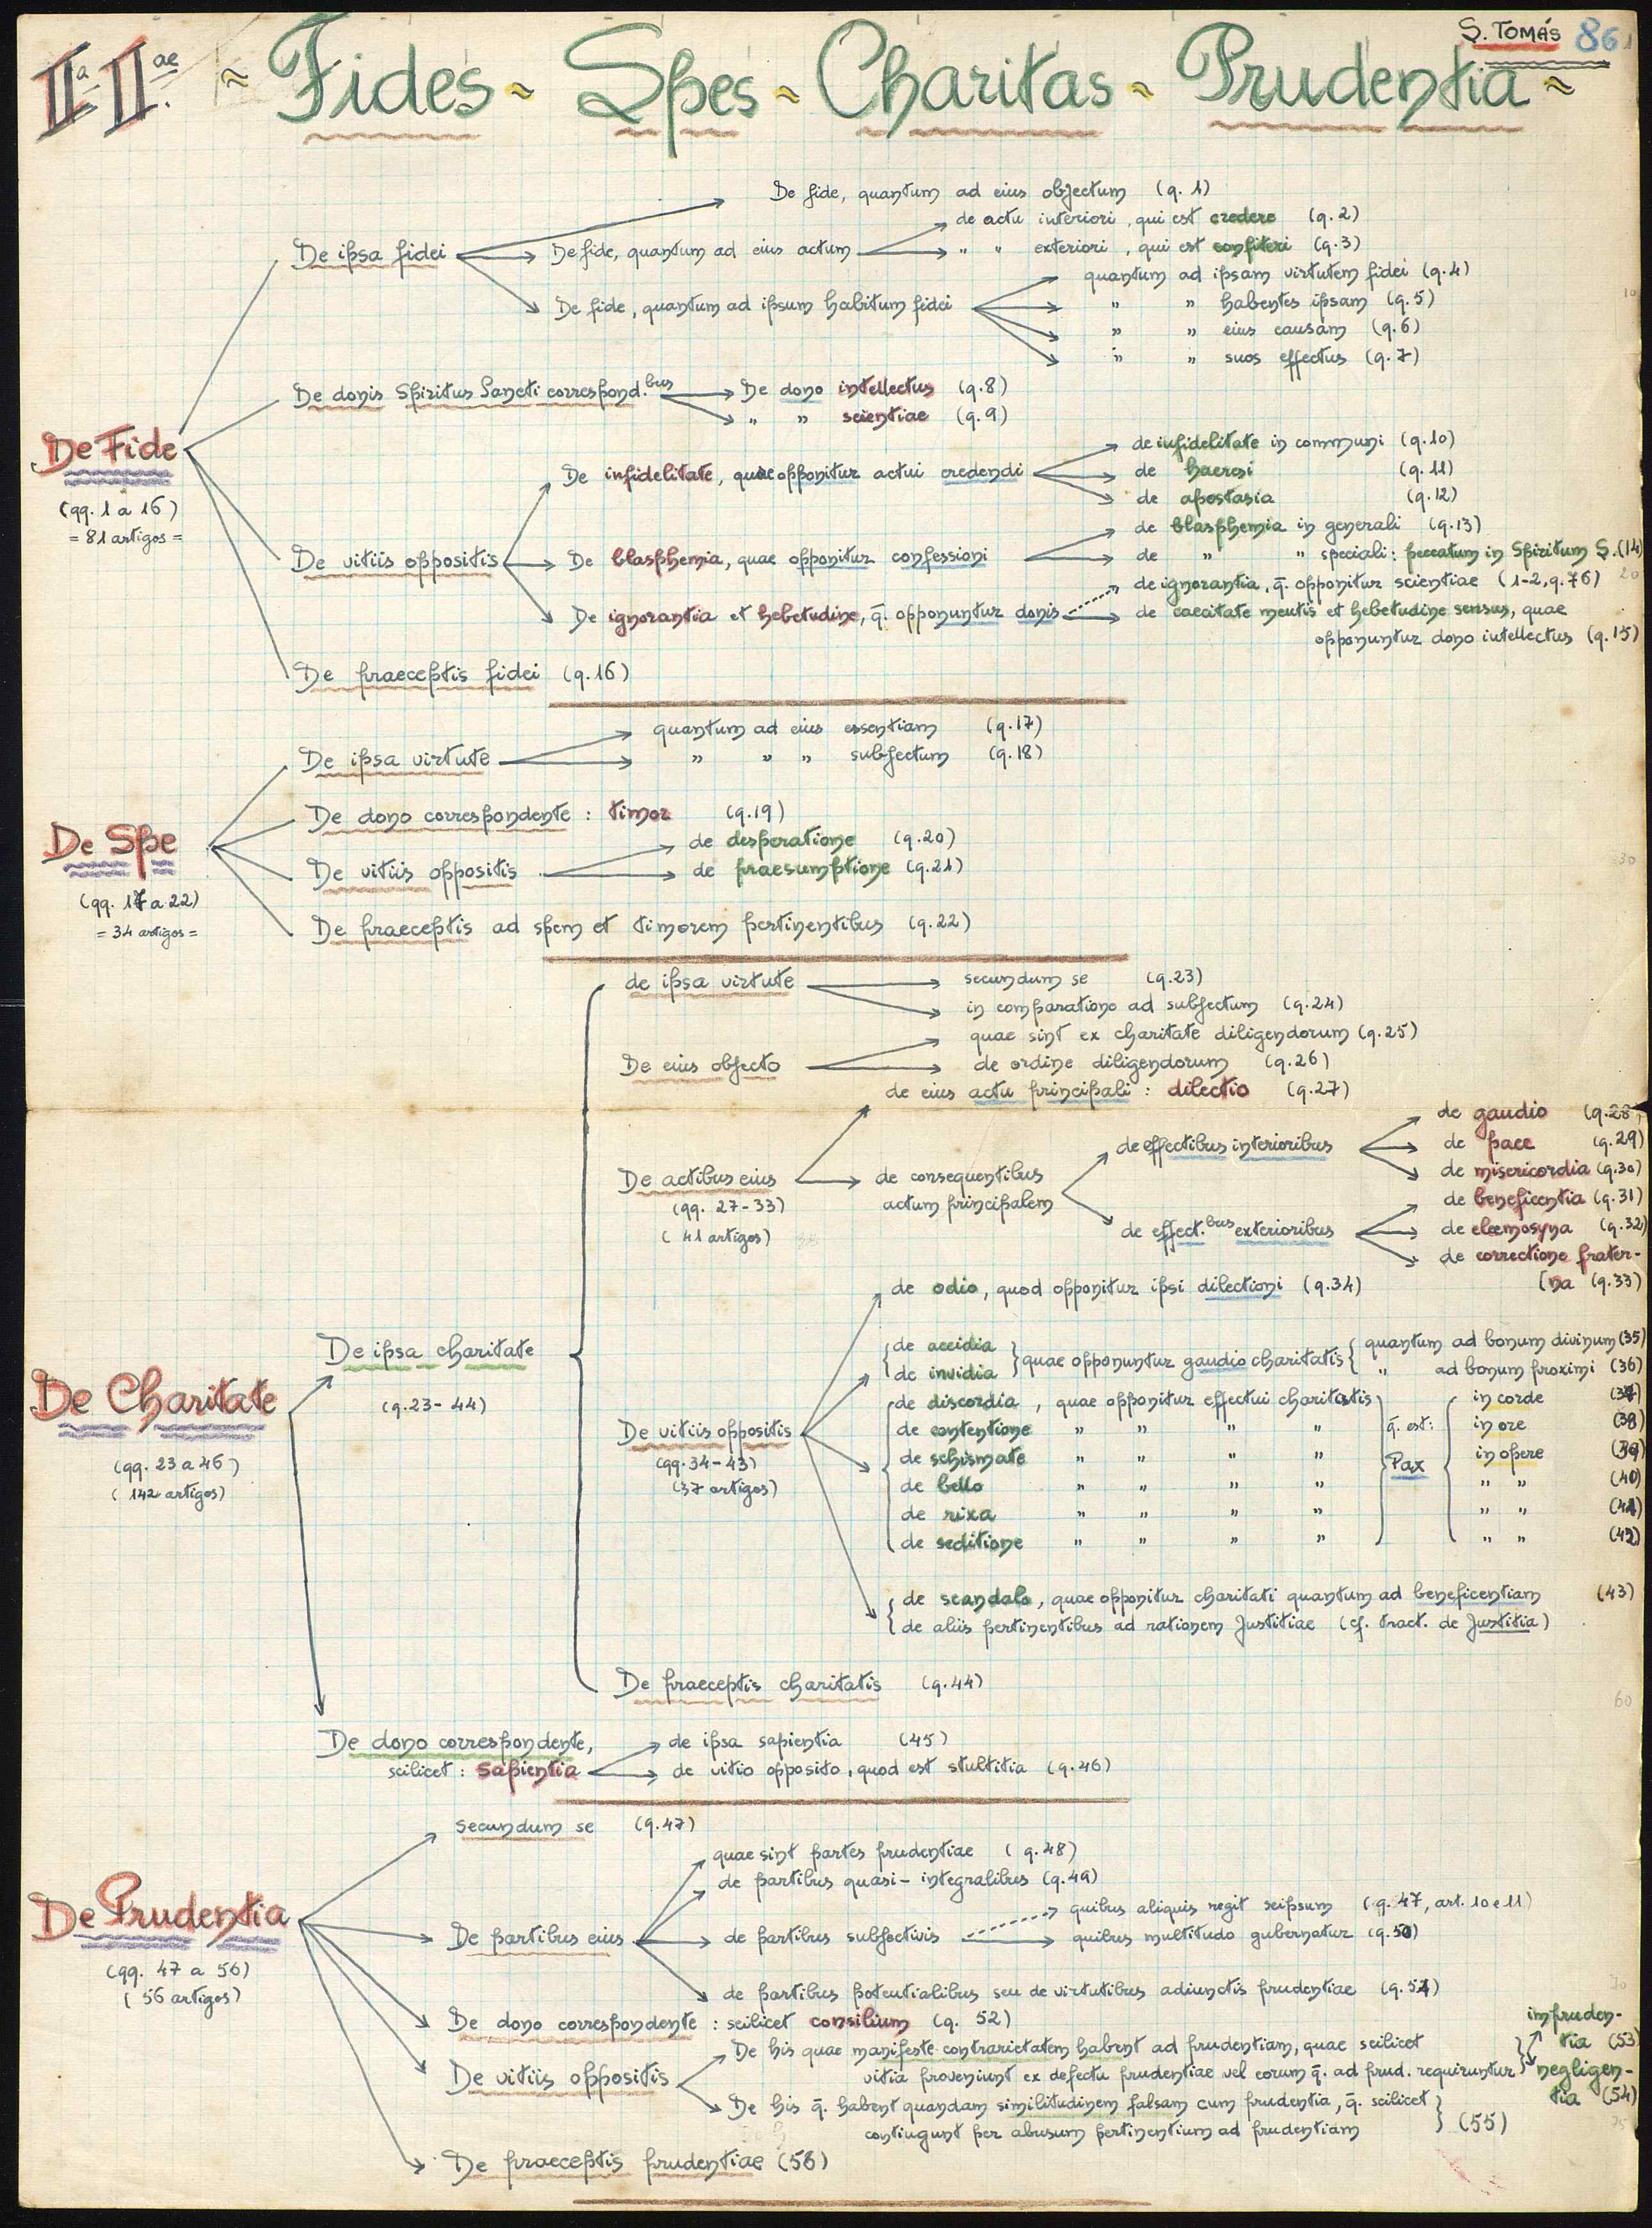 S. TOMÁS 86
IIª-IIae. ~ Fides ~ Spes ~ Charitas ~ Prudentia ~
De fide, quantum ad eius objectum (q. 1)
de actu interiori, qui est credere (q. 2)
De ipsa fidei De fide, quantum ad eius actum " " exteriori, qui est confiteri (q. 3)
quantum ad ipsam virtutem fidei (q. 4)
De fide, quantum ad ipsum habitum fidei " " habentes ipsam (q. 5)
" " eius causam (q. 6)
" " suos effectus (q. 7)
De donis Spiritus Sancti correspond.bus De dono intellectus (q. 8)
" " scientiae (q. 9)
De Fide
(qq. 1 a 16)
= 81 artigos =
de infidelitate in communi (q. 10)
De infidelitate, quae opponitur actui credendi de haeresi (q. 11)
de apostasia (q. 12)
de blasphemia in generali (q. 13)
De vitiis oppositis De blasphemia, quae opponitur confessioni de " " speciali: peccatum in Spiritum S. (14)
de ignorantia, q̄. opponitur scientiae (1-2, q. 76)
De ignorantia et hebetudine, q̄. opponuntur donis de caecitate mentis et hebetudine sensus, quae
opponuntur dono intellectus (q. 15)
De praeceptis fidei (q. 16)
quantum ad eius essentiam (q. 17)
De ipsa virtute " " " subjectum (q. 18)
De dono correspondente : timor (q. 19)
De Spe
(qq. 17 a 22)
= 34 artigos =
de desperatione (q. 20)
De vitiis oppositis de praesumptione (q. 21)
De praeceptis ad spem et timorem pertinentibus (q. 22)
de ipsa virtute secundum se (q. 23)
in comparatione ad subjectum (q. 24)
quae sint ex charitate diligendorum (q. 25)
De eius objecto de ordine diligendorum (q. 26)
de eius actu principali : dilectio (q. 27)
de gaudio (q. 28)
de effectibus interioribus de pace (q. 29)
de misericordia (q. 30)
De actibus eius de consequentibus
actum principalem
(qq. 27-33)
(41 artigos)
de beneficentia (q. 31)
de effect.bus exterioribus de eleemosyna (q. 32)
de correctione frater-
[na (q. 33)
de odio, quod opponitur ipsi dilectioni (q. 34)
De ipsa charitate
(q. 23-44)
de accidia quae opponuntur gaudio charitatis quantum ad bonum divinum (35)
de invidia " ad bonum proximi (36)
De Charitate
(qq. 23 a 46)
(142 artigos)
De vitiis oppositis
(qq. 34-43)
(37 artigos)
de discordia, quae opponitur effectui charitatis q. est: in corde (37)
de contentione " " " " in ore (38)
de schismate " " " " Pax in opere (39)
de bello " " " " " " (40)
de rixa " " " " " " (41)
de seditione " " " " " " (42)
de scandalo, quae opponitur charitati quantum ad beneficentiam (43)
de aliis pertinentibus ad rationem Justitiae (cf. tract. de Justitia)
De praeceptis charitatis (q. 44)
De dono correspondente, de ipsa sapientia (45)
scilicet : sapientia de vitio opposito, quod est stultitia (q. 46)
secundum se (q. 47)
quae sint partes prudentiae (q. 48)
de partibus quasi-integralibus (q. 49)
De Prudentia
(qq. 47 a 56)
(56 artigos)
quibus aliquis regit seipsum (q. 47, art. 10 e 11)
De partibus eius de partibus subjectivis quibus multitudo gubernatur (q. 50)
de partibus potentialibus seu de virtutibus adiunctis prudentiae (q. 51)
De dono correspondente : scilicet consilium (q. 52)
De vitiis oppositis De his quae manifeste contrarietatem habent ad prudentiam, quae scilicet
vitia proveniunt ex defectu prudentiae vel eorum q̄. ad prud. requiruntur
impruden-
tia (53)
negligen-
tia (54)
De his q̄. habent quandam similitudinem falsam cum prudentia, q̄. scilicet
contingunt per abusum pertinentium ad prudentiam (55)
De praeceptis prudentiae (56)